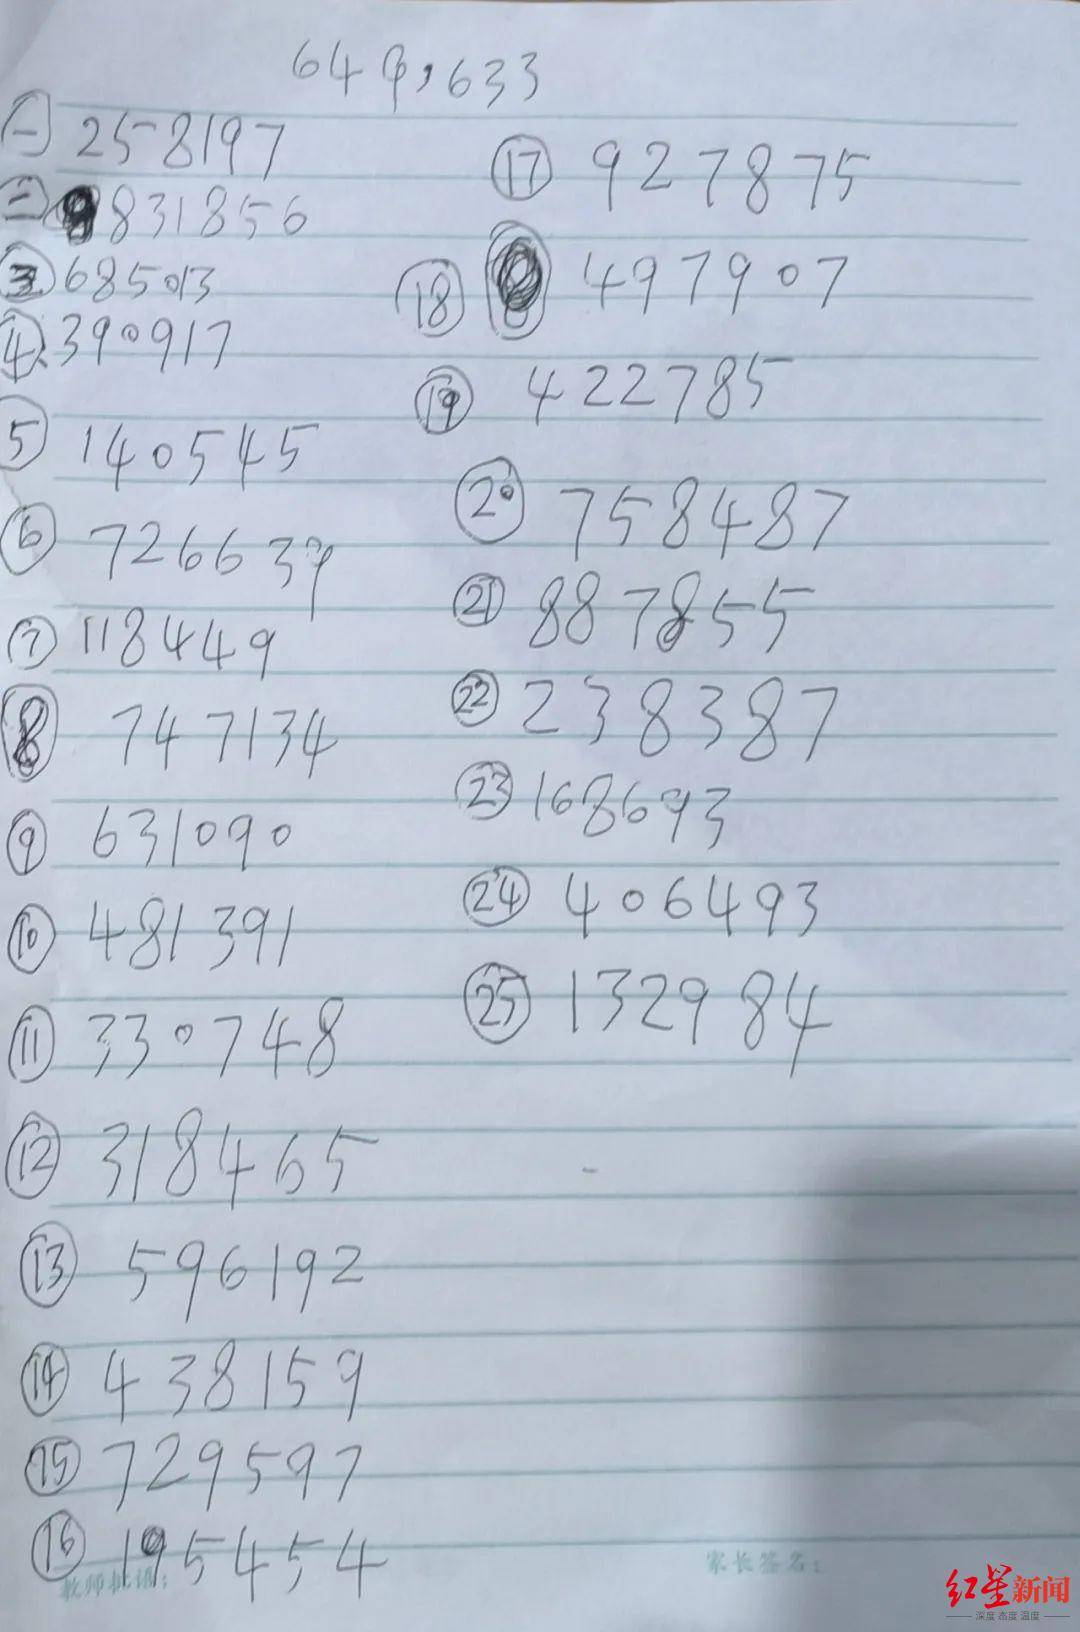 649,633
㊀ 258197
㊁ 831856
③ 685013
④ 390917
⑤ 140545
⑥ 726639
⑦ 118449
⑧ 747134
⑨ 631090
⑩ 481391
⑪ 330748
⑫ 318465
⑬ 596192
⑭ 438159
⑮ 729597
⑯ 195454
⑰ 927875
⑱ 497907
⑲ 422785
⑳ 758487
㉑ 887855
㉒ 238387
㉓ 168693
㉔ 406493
㉕ 132984
教师批语：
家长签名：
红星新闻
深度 态度 温度